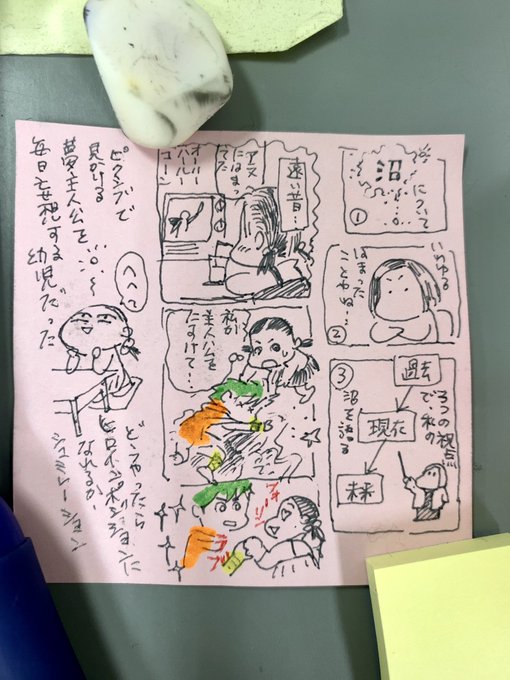 沼
について
①
いわゆる
はまった
ことやね…
②
③
過去
現在
未来
3つの視点
で、私の
沼を語る
遠い昔…
アニメ
にはま
ってた
私が
主人公を
たすけて…
フォーリン
ピクシブで
見かける
夢主人公を、
毎日妄想する
幼児だった
へへへ
どうやったら
ヒロインポジションに
なれるか
シュミレーション